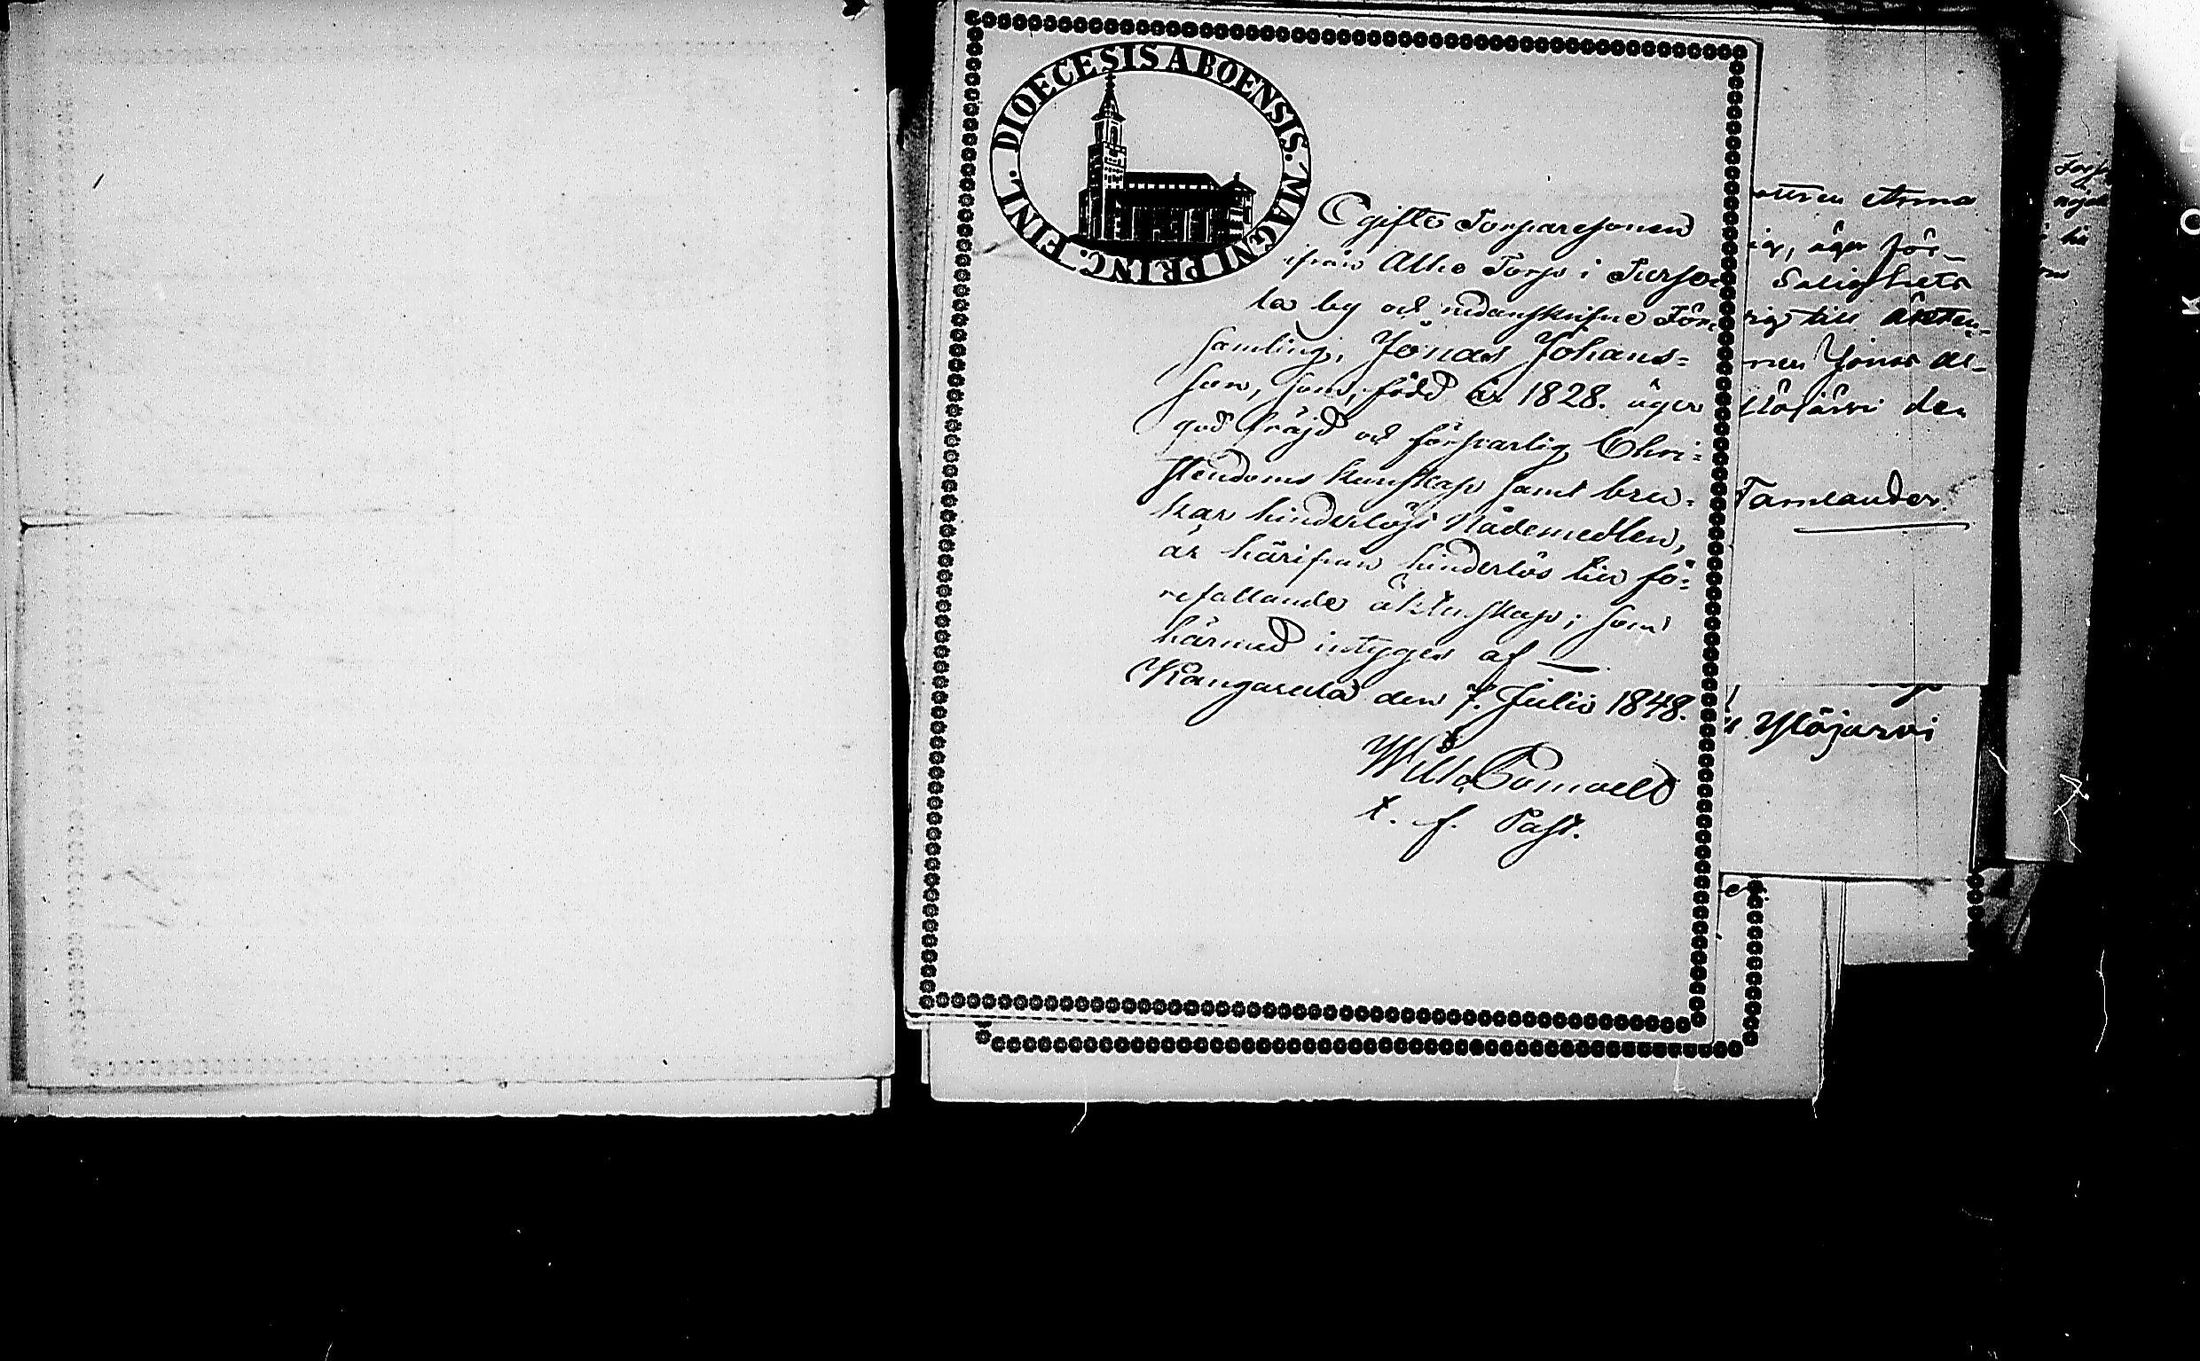 DIOECESIS ABOENSIS. MAGNI PRINC. FINL.
Ogifte Torparesonen
ifrån Alho Torp i Turso
la by och nedanskrifne För
samling, Jonas Johans=
son, som, född år 1828. äger
god fräjd och försvarlig Chri=
stendoms kunskap samt bru=
kar hinderlöst Nådemedlen,
är härifrån hinderlös till fö=
refallande äktenskap; som
härmed intygas af —
Kangasala den 7. Julii 1848.
Wilh.
t. f. Past.
Anna
äger för-
Salighets
till äkten-
Jonas
Ylöjärvi den
Tamlander.
Ylöjärvi
KOD